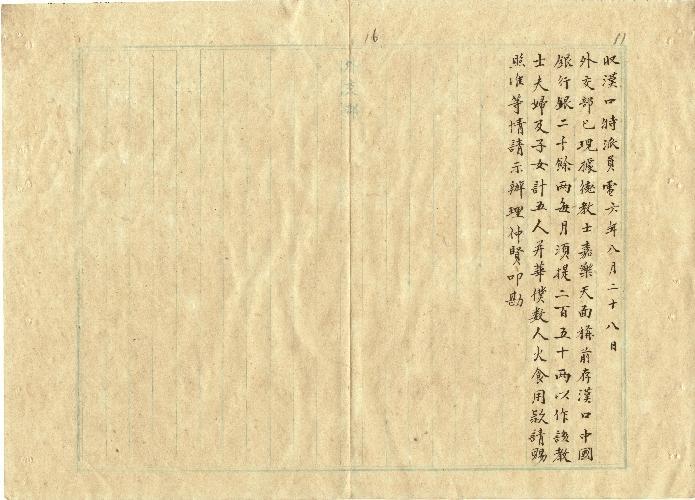 11
16
收漢口特派員電六年八月二十八日
外交部已現據德教士嘉樂天面稱前存漢口中國
銀行銀二千餘兩每月須提二百五十兩以作該教
士夫婦及子女計五人并華僕數人火食用款請賜
照准等情請示辦理仲賢叩勘
外交部